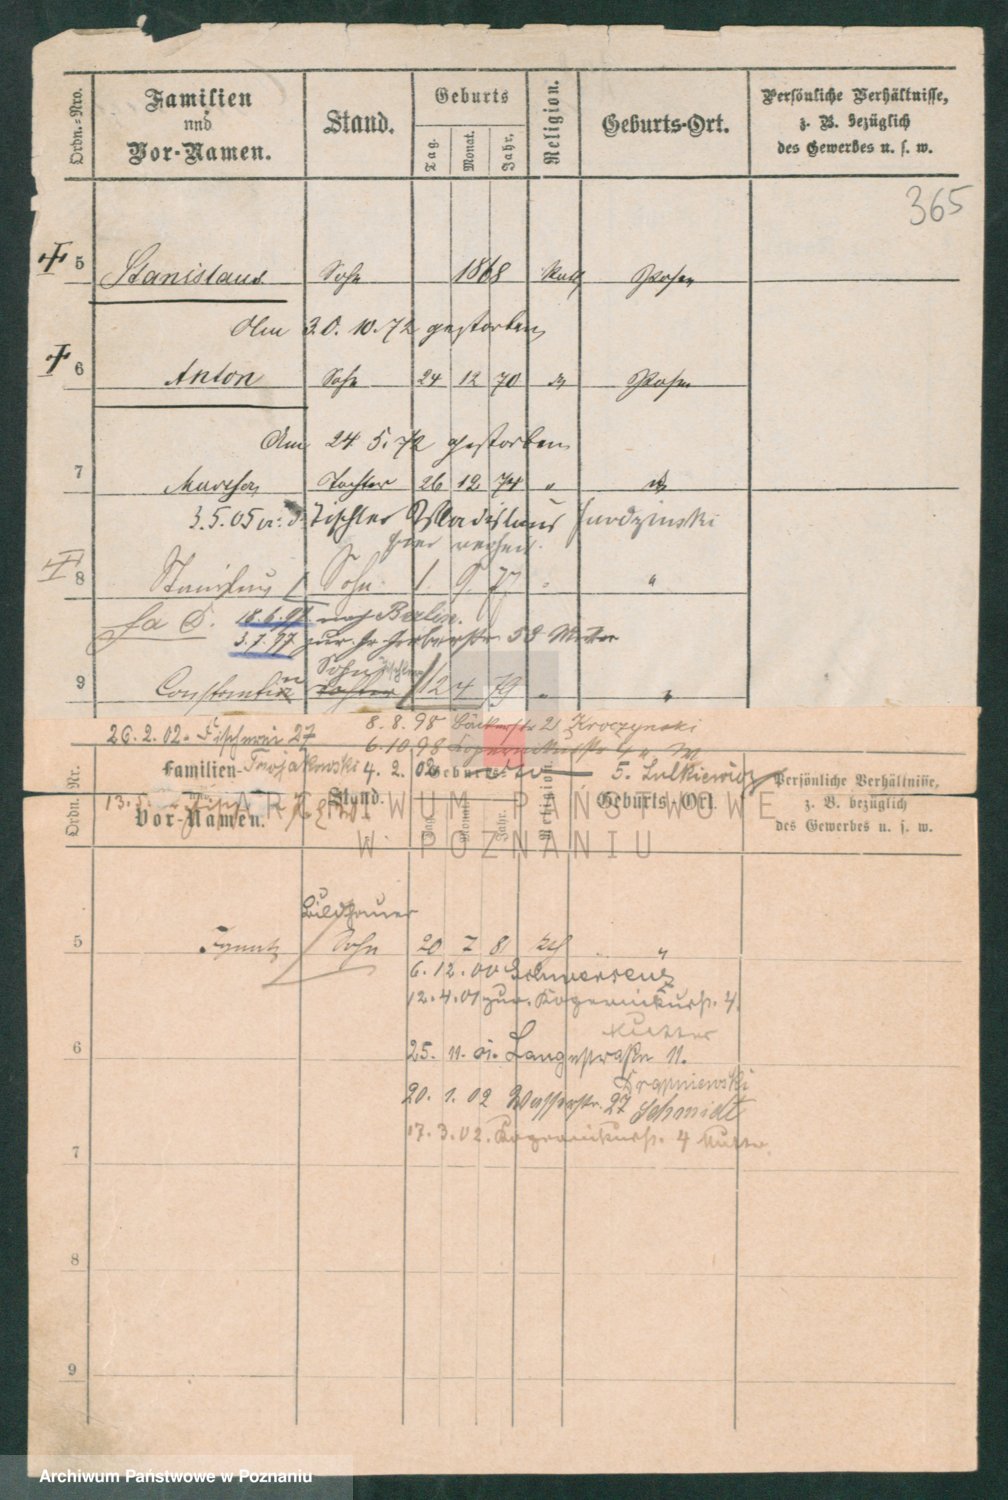 Ordn.-Nro.
Familien
und
Vor-Namen.
Stand.
Geburts
Tag.
Monat.
Jahr.
Religion.
Geburts-Ort.
Persönliche Verhältnisse,
z. B. bezüglich
des Gewerbes u. s. w.
365
5 Stanislaus Sohn 1868 Kath Posen
Am 30.10.72 gestorben
6 Anton Sohn 24 12 70 Posen
Am 24.5.72 gestorben
7 Tochter 26 12 74 "
3.5.05 Tischler Wladislaus
hier verheir.
8 Stanislaus Sohn 1. 9. 77 " "
18.6.97 nach Berlin.
3.7.97 zur. 53 Mutter
9 Constantin Sohn Tochter 12 4 79 " "
8.8.98 Bäckerstr 21 Kroczynski
26.2.02. Fischerei 27
6.10.98 4 M
Trojakowski 4.2.02 5. Lulkiewicz
Ordn. Nr.
Familien-
und
Vor-Namen.
Stand.
Geburts-
Tag.
Monat.
Jahr.
Religion.
Geburts-Ort.
Persönliche Verhältnisse,
z. B. bezüglich
des Gewerbes u. s. w.
ARCHIWUM PAŃSTWOWE
W POZNANIU
Bildhauer
5 Ignatz Sohn 20 7 81 "
6.12.00 Schwersenz
12.4.01 zur. Kopernikusstr. 4.
Mutter
6 25. 11. 01. Langestraße 11.
20. 1. 02 Wasserstr. 27 Schmidt
17.3.02. Kopernikusstr. 4
7
8
9
Archiwum Państwowe w Poznaniu